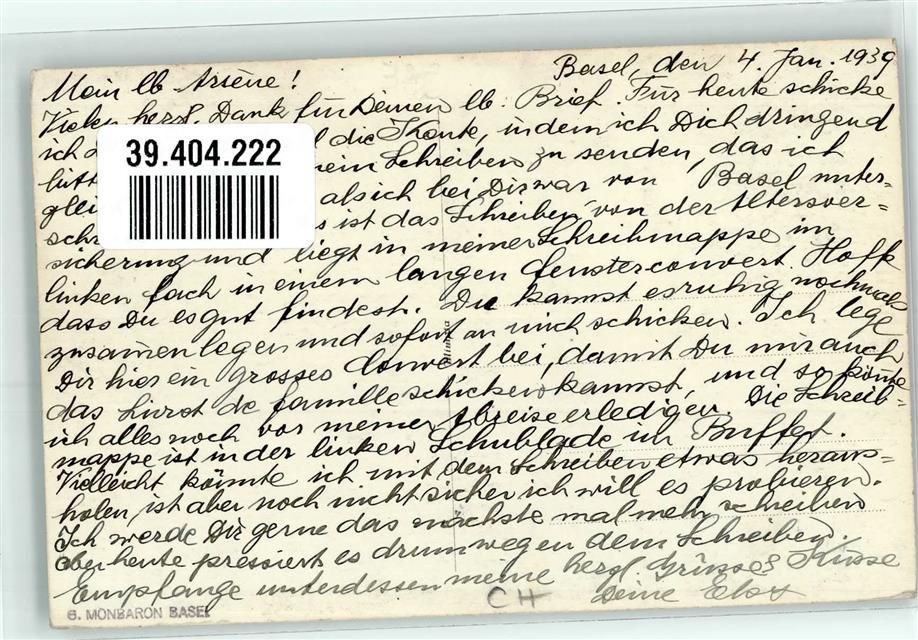 Basel, den 4. Jan. 1939
Mein lb Arsène!
Vielen herzl. Dank für Deinen lb: Brief. Für heute schicke
ich die Karte, indem ich Dich dringend
bitt mein Schreiben zu senden, das ich
glei als ich bei Dir war von Basel unter=
schr ist das Schreiben von der Altersver=
sicherung und liegt in meiner Schreibmappe im
linken fach in einem langen fensterconvert. Hoffe
dass Du es gut findest. Du kannst es ruhig nochmals
zusamenlegen und sofort an mich schicken. Ich lege
Dir hier ein grosses Convert bei, damit Du mir auch
das Livret de famille schicken kannst, und so könnte
ich alles noch vor meiner Abreise erledigen. Die Schreib-
mappe ist in der linken Schublade im Buffet.
Vielleicht könnte ich mit dem Schreiben etwas heraus=
holen, ist aber noch nicht sicher ich will es probieren.
Ich werde Dir gerne das nächste mal mehr schreiben
aber heute pressiert es drum wegen dem Schreiben.
Empfange unterdessen meine herzl Grüsse & Küsse
Deine Elsy
CH
G. MONBARON BASEL
39.404.222